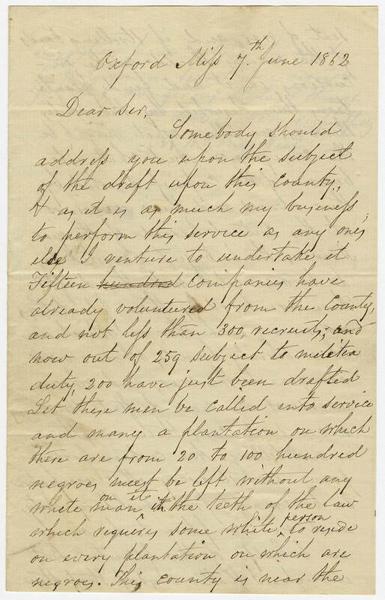 Oxford Miss 7th June 1862
Dear Sir,
Somebody should
address you upon the subject
of the draft upon this County,
& as it is as much my business
to perform this service as any ones
else I venture to undertake it
Fifteen hundred companies have
already voluntured from the County,
and not less than 300, recruits, and
now out of 259 subject to militia
duty, 200 have just been drafted
Let these men be called into service
and many a plantation on which
there are from 20 to 100 hundred
negroes must be left without any
white man on it in the teeth of the law
which requires some white person to reside
on every plantation on which are
negroes. This county is near the